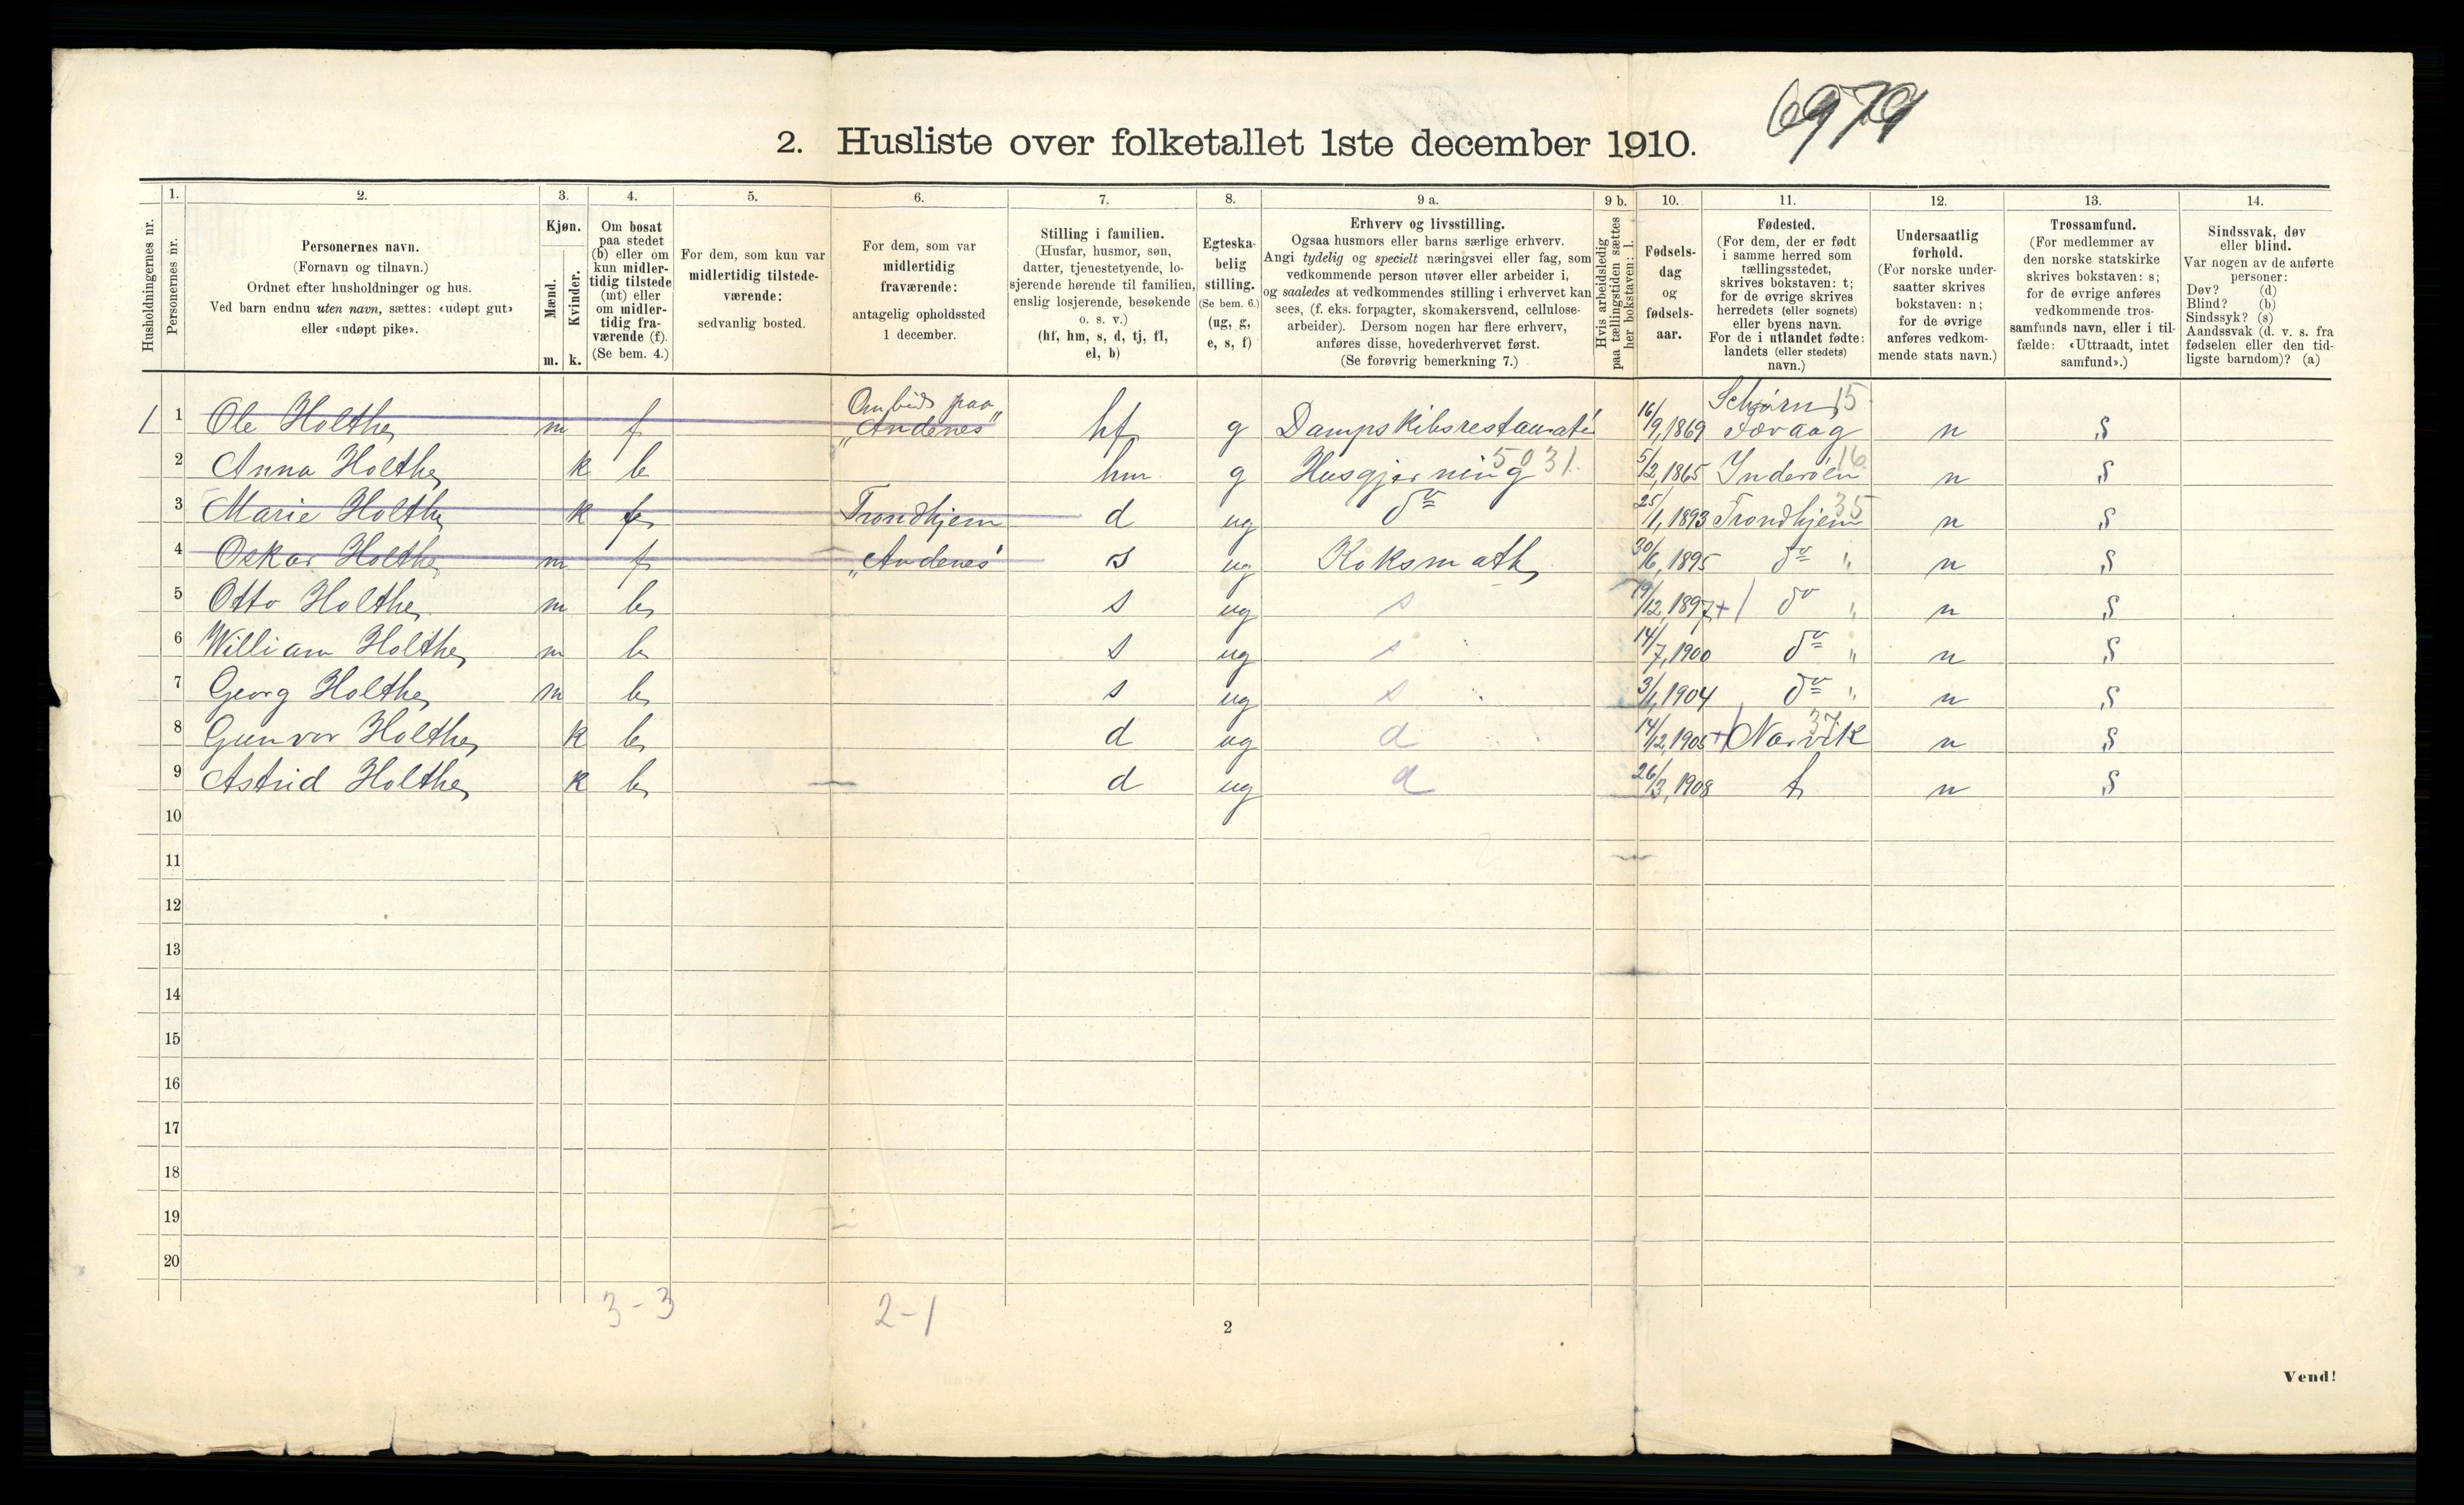 6979
2. Husliste over folketallet 1ste december 1910.
Husholdningernes nr.
1.
Personernes nr.
2.
Personernes navn.
(Fornavn og tilnavn.)
Ordnet efter husholdninger og hus.
Ved barn endnu uten navn, sættes: «udøpt gut»
eller «udøpt pike».
3.
Kjøn.
Mænd.
Kvinder.
m. k.
4.
Om bosat
paa stedet
(b) eller om
kun midler-
tidig tilstede
(mt) eller
om midler-
tidig fra-
værende (f).
(Se bem. 4.)
5.
For dem, som kun var
midlertidig tilstede-
værende:
sedvanlig bosted.
6.
For dem, som var
midlertidig
fraværende:
antagelig opholdssted
1 december.
7.
Stilling i familien.
(Husfar, husmor, søn,
datter, tjenestetyende, lo-
sjerende hørende til familien,
enslig losjerende, besøkende
o. s. v.)
(hf, hm, s, d, tj, fl,
el, b)
8.
Egteska-
belig
stilling.
(Se bem. 6.)
(ug, g,
e, s, f)
9 a.
Erhverv og livsstilling.
Ogsaa husmors eller barns særlige erhverv.
Angi tydelig og specielt næringsvei eller fag, som
vedkommende person utøver eller arbeider i,
og saaledes at vedkommendes stilling i erhvervet kan
sees, (f. eks. forpagter, skomakersvend, cellulose-
arbeider). Dersom nogen har flere erhverv,
anføres disse, hovederhvervet først.
(Se forøvrig bemerkning 7.)
9 b.
Hvis arbeidsledig
paa tællingstiden sættes
her bokstaven: l.
10.
Fødsels-
dag
og
fødsels-
aar.
11.
Fødested.
(For dem, der er født
i samme herred som
tællingsstedet,
skrives bokstaven: t;
for de øvrige skrives
herredets (eller sognets)
eller byens navn.
For de i utlandet fødte:
landets (eller stedets)
navn.)
12.
Undersaatlig
forhold.
(For norske under-
saatter skrives
bokstaven: n;
for de øvrige
anføres vedkom-
mende stats navn.)
13.
Trossamfund.
(For medlemmer av
den norske statskirke
skrives bokstaven: s;
for de øvrige anføres
vedkommende tros-
samfunds navn, eller i til-
fælde: «Uttraadt, intet
samfund».)
14.
Sindssvak, døv
eller blind.
Var nogen av de anførte
personer:
Døv? (d)
Blind? (b)
Sindssyk? (s)
Aandssvak (d. v. s. fra
fødselen eller den tid-
ligste barndom)? (a)
1 1 Ole Holthe m f Ombord paa „Andenes" hf g Dampskibsrestauratør 16/9, 1869 15 n s
2 Anna Holthe k b hm g Husgjerning 5031. 5/2, 1865 Inderøen 16 n s
3 Marie Holthe k f Trondhjem d ug do 25/1, 1893 Trondhjem 35 n s
4 Oskar Holthe m f „Andenes" s ug Koksmath 30/6, 1895 do " n s
5 Otto Holthe m b s ug s 19/12, 1897 + do " n s
6 William Holthe m b s ug s 14/7, 1900 do " n s
7 Georg Holthe m b s ug s 3/1, 1904 do " n s
8 Gunvor Holthe k b d ug d 14/12, 1905 + Narvik 37 n s
9 Astrid Holthe k b d ug d 26/3, 1908 t n s
10
11
12
13
14
15
16
17
18
19
20
3-3 2-1
2
Vend!